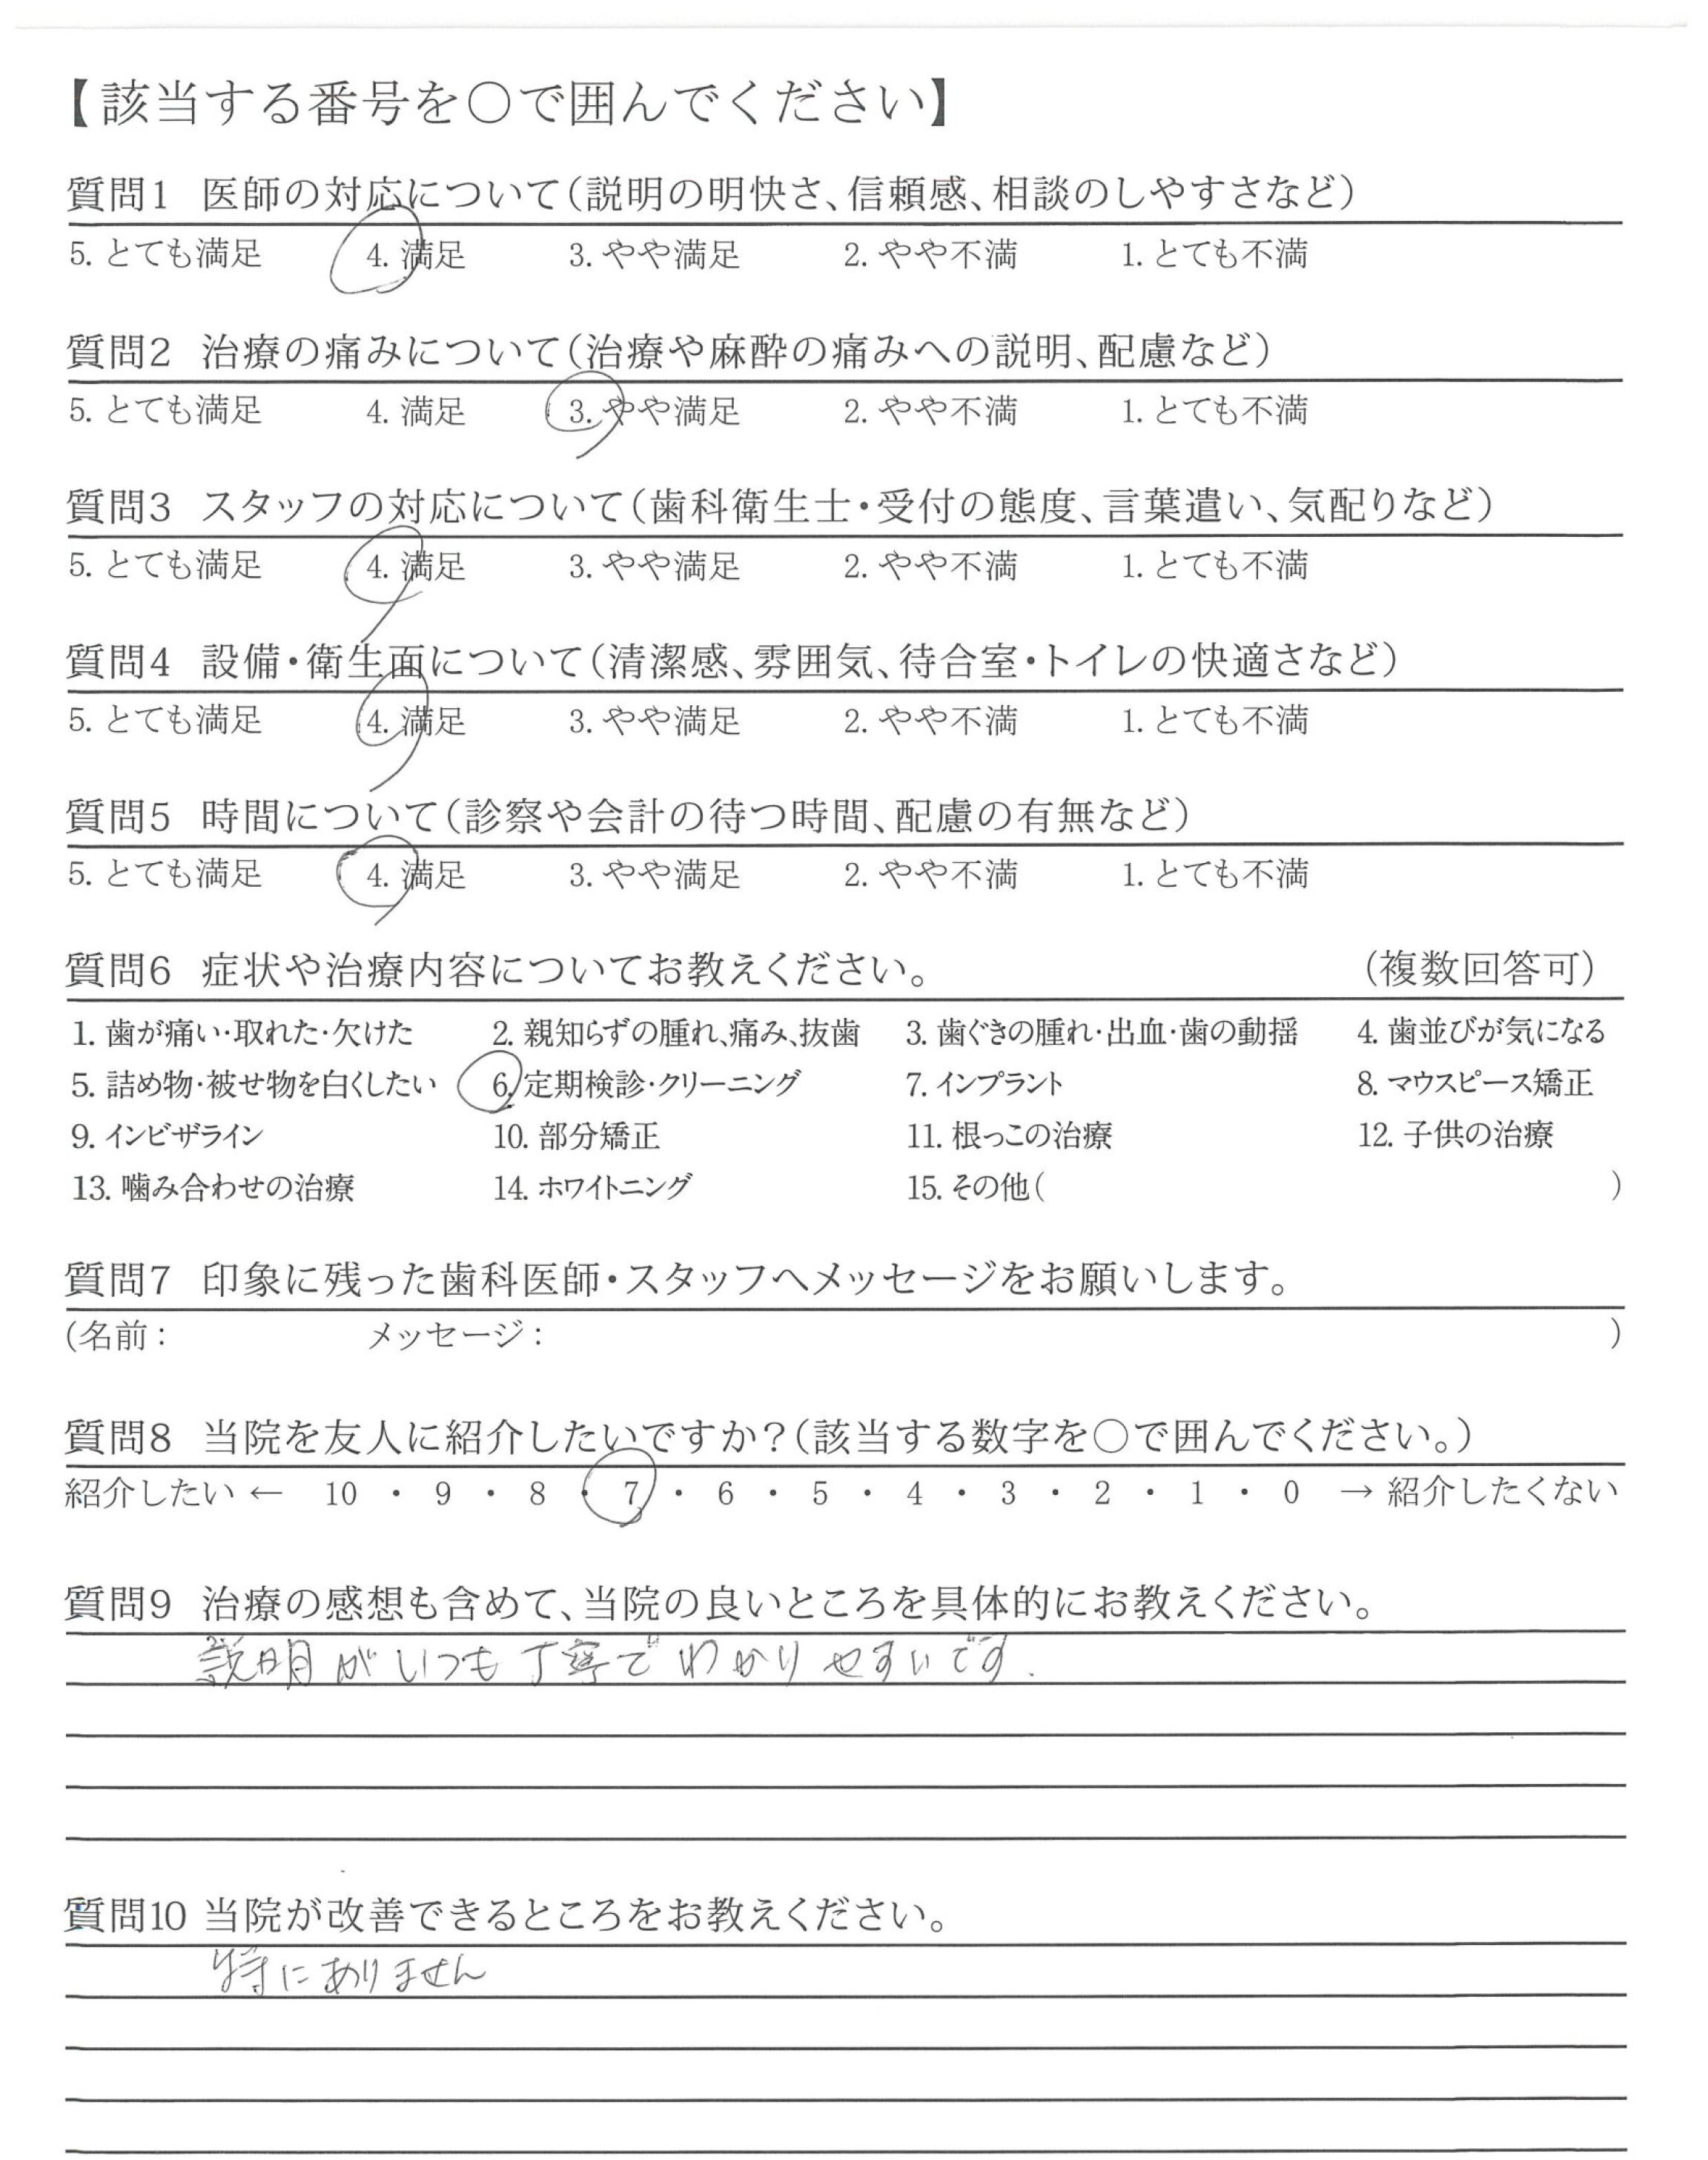 【該当する番号を○で囲んでください】
質問1 医師の対応について(説明の明快さ、信頼感、相談のしやすさなど)
5. とても満足 4. 満足 3. やや満足 2. やや不満 1. とても不満
質問2 治療の痛みについて(治療や麻酔の痛みへの説明、配慮など)
5. とても満足 4. 満足 3. やや満足 2. やや不満 1. とても不満
質問3 スタッフの対応について(歯科衛生士・受付の態度、言葉遣い、気配りなど)
5. とても満足 4. 満足 3. やや満足 2. やや不満 1. とても不満
質問4 設備・衛生面について(清潔感、雰囲気、待合室・トイレの快適さなど)
5. とても満足 4. 満足 3. やや満足 2. やや不満 1. とても不満
質問5 時間について(診察や会計の待つ時間、配慮の有無など)
5. とても満足 4. 満足 3. やや満足 2. やや不満 1. とても不満
質問6 症状や治療内容についてお教えください。 (複数回答可)
1. 歯が痛い・取れた・欠けた 2. 親知らずの腫れ、痛み、抜歯 3. 歯ぐきの腫れ・出血・歯の動揺 4. 歯並びが気になる
5. 詰め物・被せ物を白くしたい 6. 定期検診・クリーニング 7. インプラント 8. マウスピース矯正
9. インビザライン 10. 部分矯正 11. 根っこの治療 12. 子供の治療
13. 噛み合わせの治療 14. ホワイトニング 15. その他( )
質問7 印象に残った歯科医師・スタッフへメッセージをお願いします。
(名前: メッセージ: )
質問8 当院を友人に紹介したいですか?(該当する数字を○で囲んでください。)
紹介したい ← 10 ・ 9 ・ 8 ・ 7 ・ 6 ・ 5 ・ 4 ・ 3 ・ 2 ・ 1 ・ 0 → 紹介したくない
質問9 治療の感想も含めて、当院の良いところを具体的にお教えください。
説明がいつも丁寧でわかりやすいです.
質問10 当院が改善できるところをお教えください。
特にありません